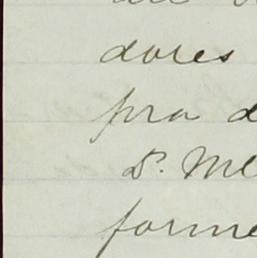 dores
pra d
D. Me
forme